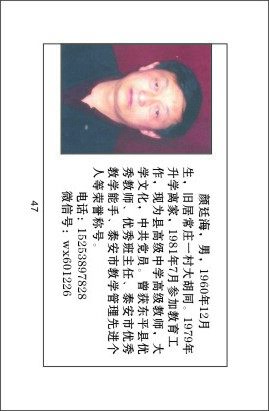 颜廷海，男，1960年12月
生，旧居常庄一村大胡同。1979年
升学离家，1981年7月参加教育工
作，现为县高级中学高级教师，大
学文化，中共党员。曾获东平县优
秀教师、优秀班主任、泰安市优秀
教学能手、泰安市教学管理先进个
人等荣誉称号。
电话：15253897828
微信号：wx601226
47